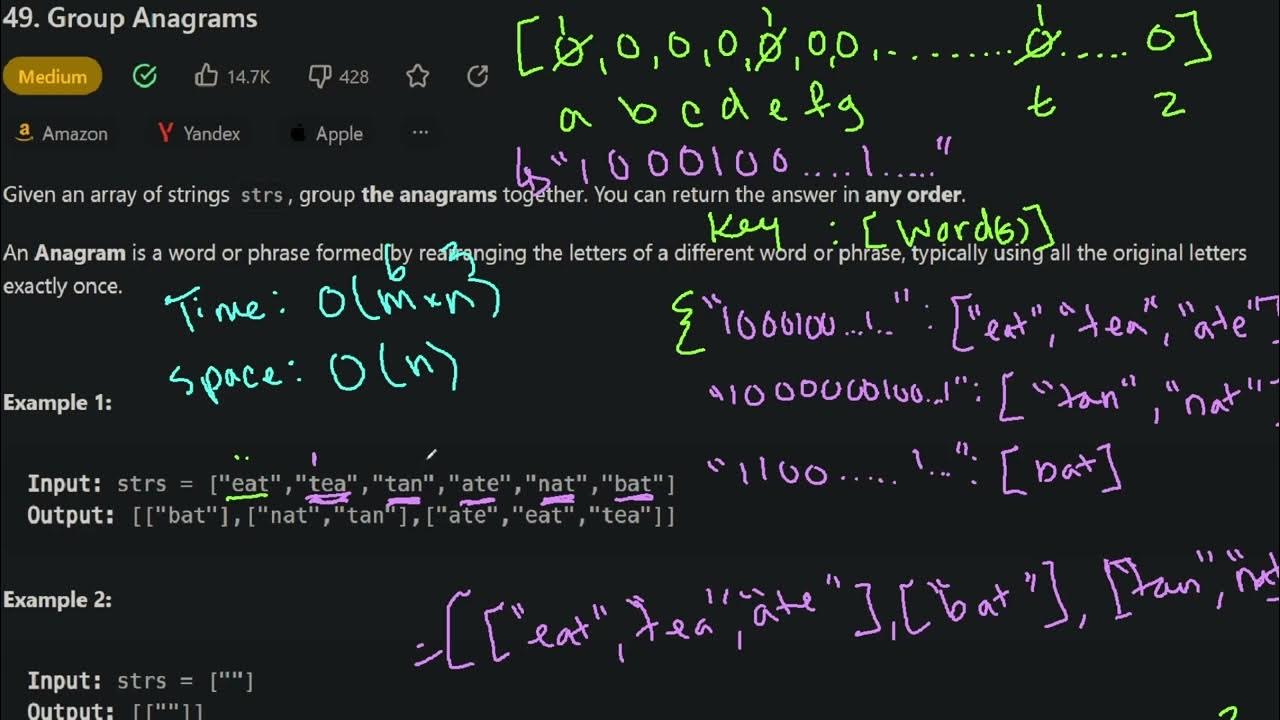 49. Group Anagrams
Medium 14.7K 428
Amazon Yandex Apple ...
[0, 0, 0, 0, 0, 0, 0, ......... 0 ..... 0]
1 1 1
a b c d e f g t z
↳ "1000100....1....."
Given an array of strings strs, group the anagrams together. You can return the answer in any order.
Key : [word(s)]
An Anagram is a word or phrase formed by rearranging the letters of a different word or phrase, typically using all the original letters
exactly once.
6 3
Time: O(m×n)
Space: O(n)
{"1000100...1..": ["eat", "tea", "ate"]
"1000000100...1": ["tan", "nat"
"1100.....1...": [bat]
Example 1:
Input: strs = ["eat","tea","tan","ate","nat","bat"]
Output: [["bat"],["nat","tan"],["ate","eat","tea"]]
= [["eat", "tea", "ate"], ["bat"], ["tan", "nat
Example 2:
Input: strs = [""]
Output: [[""]]